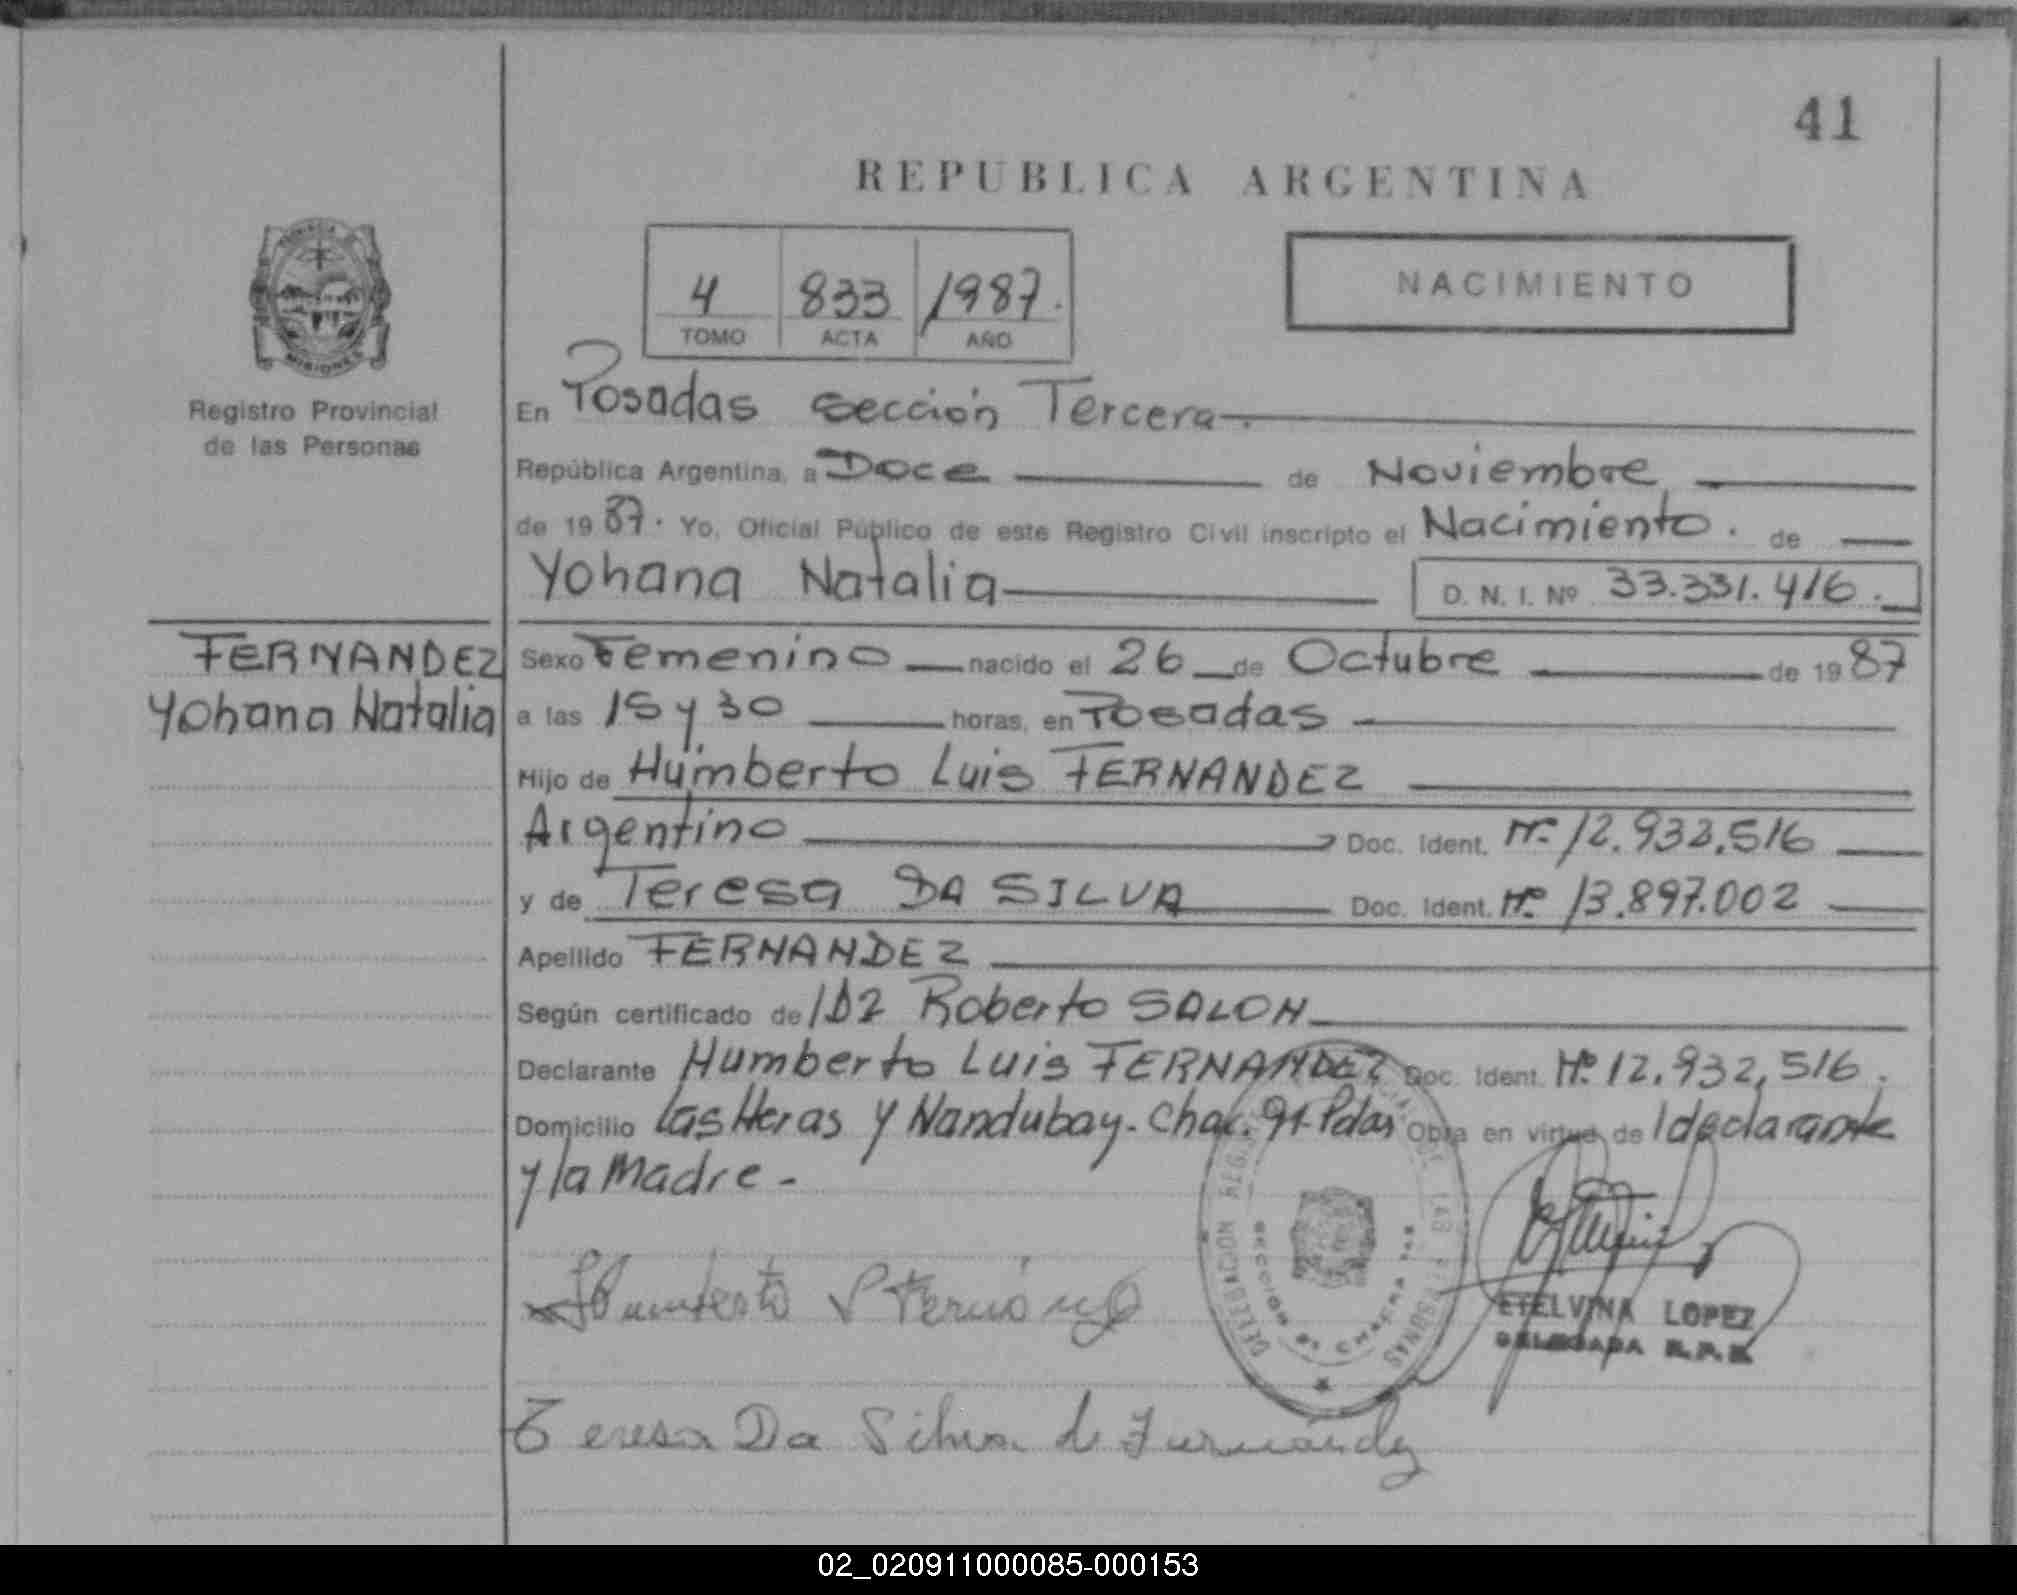 41
REPUBLICA ARGENTINA
4 833 1987.
TOMO ACTA AÑO
NACIMIENTO
MISIONES
Registro Provincial
de las Personas
En Posadas sección Tercera.
República Argentina, a Doce de Noviembre
de 1987. Yo, Oficial Público de este Registro Civil inscripto el Nacimiento. de
Yohana Natalia D. N. I. Nº 33.331.416.
FERNANDEZ
Yohana Natalia
Sexo Femenino nacido el 26 de Octubre de 1987
a las 15 y 30 horas, en Posadas
Hijo de Humberto Luis FERNANDEZ
Argentino Doc. Ident. Nº 12.932.516
y de Teresa DA SILVA Doc. Ident. Nº 13.897.002
Apellido FERNANDEZ
Según certificado de Roberto SALON
Declarante Humberto Luis FERNANDEZ Doc. Ident. Nº 12.932,516.
Domicilio Las Heras y Nandubay. Chac. 91. Pdas Obra en virtud de l declarante
y la Madre.
Teresa Da Silva de Fernández
ETELVINA LOPEZ
DELEGADA R.P.P.
02_020911000085-000153